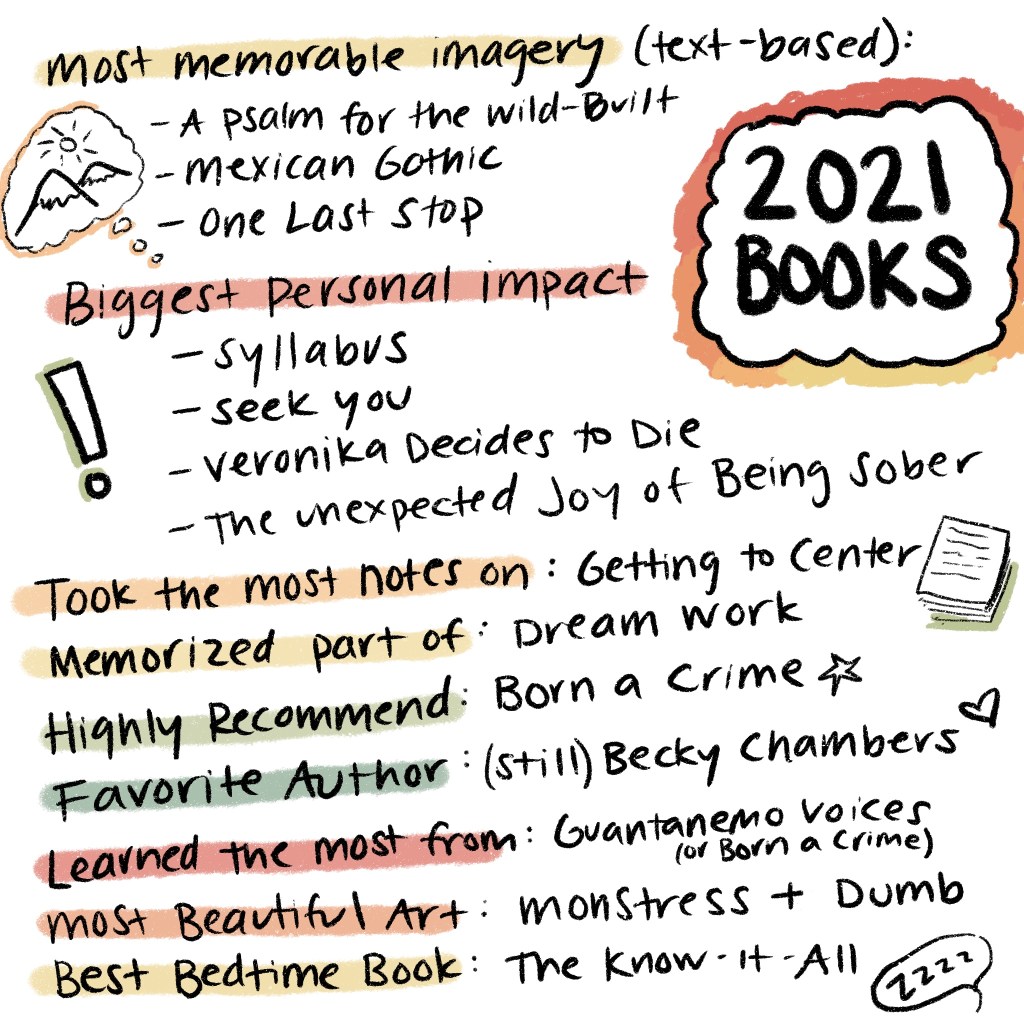 most memorable imagery (text-based):
- A psalm for the wild-Built
- mexican Gothic
- one Last Stop
2021
BOOKS
Biggest personal impact
- syllabus
- seek you
- veronika Decides to Die
- The unexpected Joy of Being Sober
Took the most notes on: Getting to Center
Memorized part of: Dream Work
Highly Recommend: Born a Crime
Favorite Author: (still) Becky Chambers
Learned the most from: Guantanemo Voices
(or Born a Crime)
most Beautiful Art: monstress + Dumb
Best Bedtime Book: The Know-It-All
zzzz